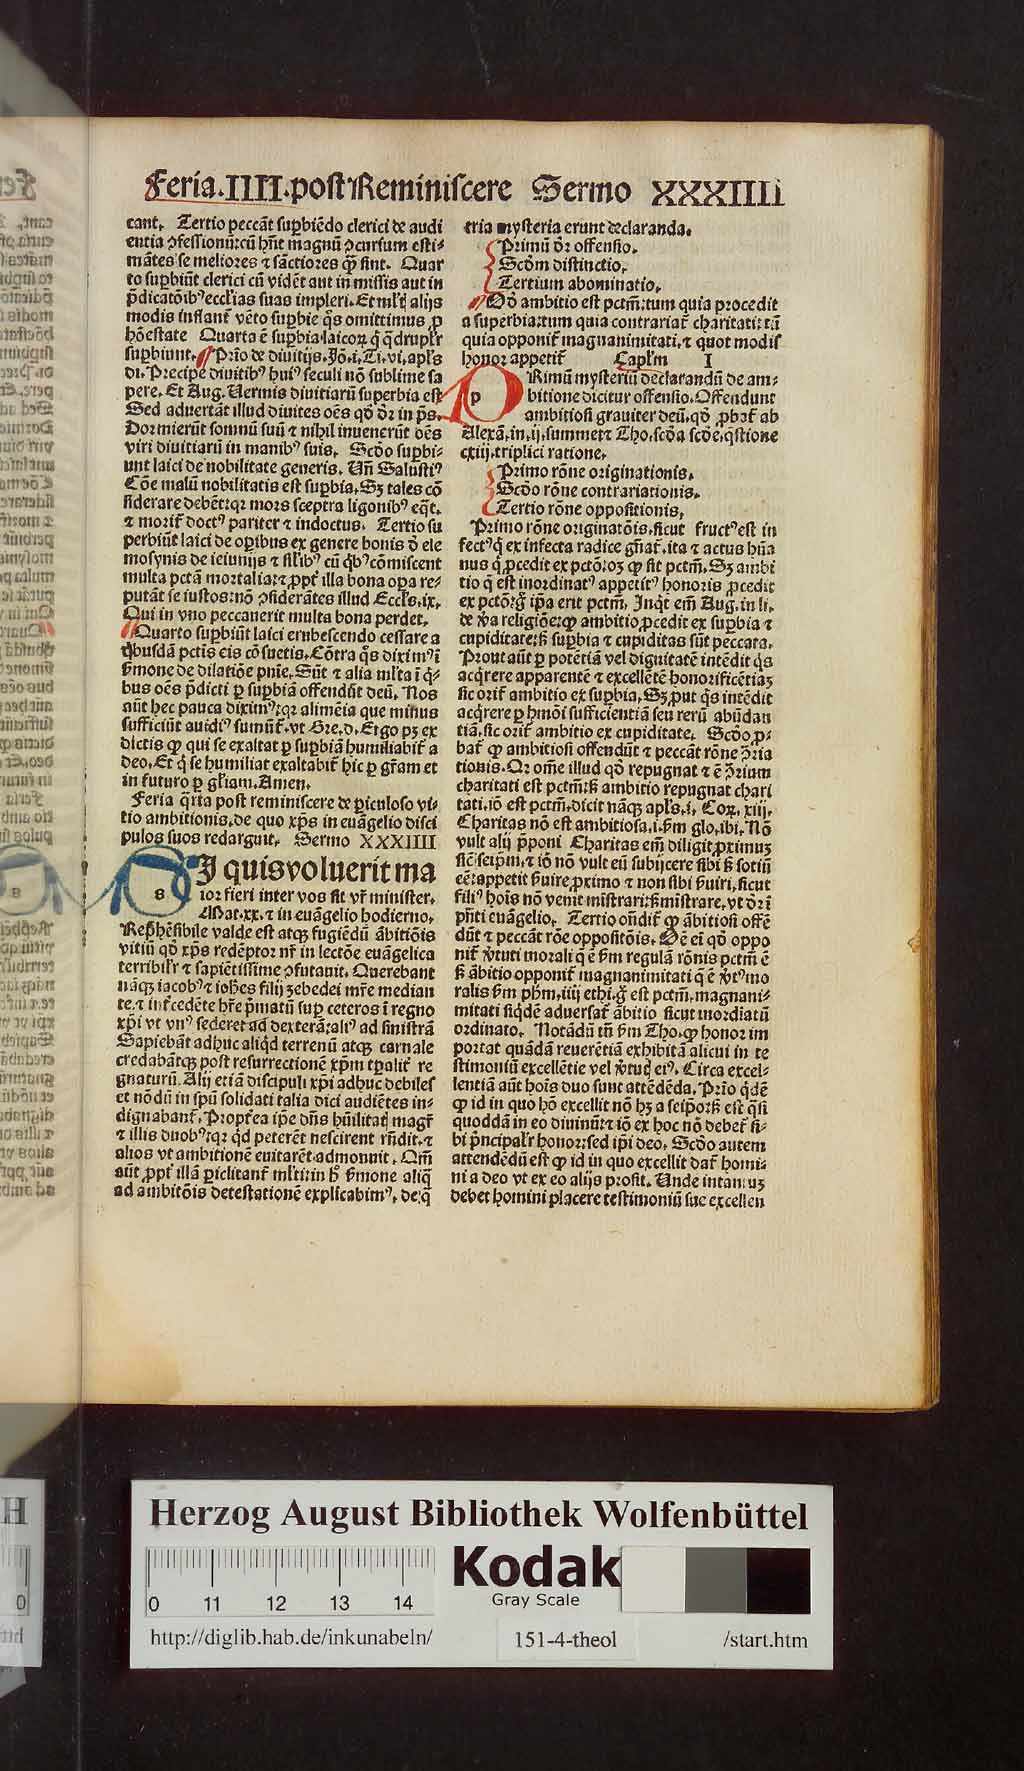 Feria.IIII.post Reminiscere Sermo XXXIIII
cant. Tertio peccāt supbiēdo clerici de audi
entia ꝯfessionū:cū hn̄t magnū ꝯcursum esti-
mātes se meliores ⁊ sāctiores ꝙ̄ sint. Quar
to supbiūt clerici cū vidēt aut in missis aut in
p̄dicatōibꝰ eccl'ias suas impleri. Et ml'ti alijs
modis inflant᷑ vēto supbie q̄s omittimus ꝓ
hōestate Quarta ē supbia laicoꝝ q̇ q̇drupl'r
supbiunt. Prio de diuitijs. Jō. i. Ti. vi. apl's
di. Precipe diuitibꝰ huiꝰ seculi nō sublime sa
pere. Et Aug. Uermis diuitiarū superbia est
Sed aduertāt illud diuites oēs qd̄ dr̄ in ps̄.
Dormierūt somnū suū ⁊ nihil inuenerūt oēs
viri diuitiarū in manibꝰ suis. Scd̄o supbi-
unt laici de nobilitate generis. Un̄ Salustiꝰ
Cōe malū nobilitatis est supbia. Sꝫ tales cō
siderare debēt:qꝛ mors sceptra ligonibꝰ eq̄t.
⁊ morit᷑ doctꝰ pariter ⁊ indoctus. Tertio su
perbiūt laici de opibus ex genere bonis vꝫ ele
mosynis de ieiunijs ⁊ sil'ibꝰ cū qͥbꝰ cōmiscent
multa pctā mortalia:⁊ ꝓpt᷑ illa bona opa re-
putāt se iustos:nō ꝯsiderātes illud Eccl's. ix.
Qui in vno peccauerit multa bona perdet.
Quarto supbiūt laici erubescendo cessare a
qͥbusdā pctis eis cōsuetis. Cōtra q̄s diximꝰ ī
ẜmone de dilatiōe pnīe. Sūt ⁊ alia ml'ta ī q̇-
bus oēs p̄dicti ꝑ supbiā offendūt deū. Nos
aūt hec pauca diximꝰ:qꝛ alimēta que minus
sufficiūt auidiꝰ sumūt᷑. vt Gre. d. Ergo pꝫ ex
dictis ꝙ qui se exaltat ꝑ supbiā humiliabit᷑ a
deo. Et q̇ se humiliat exaltabit᷑ hic ꝑ gr̄am et
in futuro ꝑ gl'iam. Amen.
Feria q̄rta post reminiscere de piculoso vi-
tio ambitionis. de quo xp̄s in euāgelio disci
pulos suos redarguit. Sermo XXXIIII
SI quis voluerit ma
ior fieri inter vos sit vr̄ minister.
Mat. xx. ⁊ in euāgelio hodierno.
Rephēsibile valde est atqꝫ fugiēdū ābitiōis
vitiū qd̄ xp̄s redēptor nr̄ in lectōe euāgelica
terribil'r ⁊ sapiētissime ꝯfutauit. Querebant
nāqꝫ iacobꝰ ⁊ ioh̄es filij zebedei mr̄e median
te. ⁊ int᷑cedēte hr̄e p̄matū sup ceteros ī regno
xp̄i vt vnꝰ sederet ad dexterā:aliꝰ ad sinistrā
Sapiebāt adhuc aliqd̄ terrenū atqꝫ carnale
credabātqꝫ post resurrectionē xp̄m tꝑalit᷑ re
gnaturū. Alij etiā discipuli xp̄i adhuc debiles
et nōdū in spū solidati talia dici audiētes in-
dignabant᷑. Propt᷑ea ip̄e dn̄s hūilitatꝭ magr̄
⁊ illis duobꝰ:qꝛ qd̄ peterēt nescirent rn̄dit. ⁊
alios vt ambitionē euitarēt admonuit. Qm̄
aūt ꝓpt᷑ illā piclitant᷑ ml'ti:in hͦ ẜmone aliq̄
ad ambitōis detestationē explicabimꝰ. de q̄
tria mysteria erunt declaranda.
Primū dr̄ offensio.
Scd̄m distinctio.
Tertium abominatio.
Qd̄ ambitio est pctm̄:tum quia procedit
a superbia:tum quia contrariat᷑ charitati:tū
quia opponit᷑ magnanimitati. ⁊ quot modis
honor appetit᷑ Capl'm I
PRimū mysteriū declarandū de am-
bitione dicitur offensio. Offendunt
ambitiosi grauiter deū. qd̄ ꝓbat᷑ ab
Alexā. in. ij. summe:⁊ Tho. scd̄a scd̄e. q̄stione
cxiij. triplici ratione.
Primo rōne originationis.
Scd̄o rōne contrariationis.
Tertio rōne oppositionis.
Primo rōne originatōis. sicut fructꝰ est in
fectꝰ q̇ ex infecta radice gn̄at᷑. ita ⁊ actus hūa
nus q̇ ꝓcedit ex pctō:oꝫ ꝙ sit pctm̄. Sꝫ ambi
tio q̄ est inordinatꝰ appetitꝰ honoris ꝓcedit
ex pctō:g̊ ip̄a erit pctm̄. Inqt᷑ em̄ Aug. in li.
de v̄a religiōe:ꝙ ambitio ꝓcedit ex supbia ⁊
cupiditate:sꝫ supbia ⁊ cupiditas sūt peccata.
Prout aūt ꝑ potētiā vel dignitatē intēdit q̄s
acq̄rere apparentē ⁊ excellētē honorificētiā:
sic orit᷑ ambitio ex supbia. Sꝫ ꝓut q̄s intēdit
acq̄rere ꝑ hm̄oi sufficientiā seu rerū abūdan
tiā. sic orit᷑ ambitio ex cupiditate. Scd̄o ꝓ-
bat᷑ ꝙ ambitiosi offendūt ⁊ peccāt rōne ꝯ̄ria
tionis. Qꝛ om̄e illud qd̄ repugnat ⁊ ē ꝯ̄rium
charitati est pctm̄:sꝫ ambitio repugnat chari
tati. iō est pctm̄. dicit nāqꝫ apl's. i. Coꝝ. xiij.
Charitas nō est ambitiosa. i. ẜm glo. ibi. Nō
vult alij p̄poni Charitas em̄ diligit ꝓximuꝫ
sic̄ seip̄m. ⁊ iō nō vult eū subijcere sibi sꝫ sotiū
eē:appetit ẜuire ꝓximo ⁊ non sibi ẜuiri. sicut
filiꝰ hoīs nō venit mīstrari:sꝫ mīstrare. vt dr̄ ī
pn̄ti euāgelio. Tertio on̄dit᷑ ꝙ ābitiosi offē
dūt ⁊ peccāt rōe oppositōis. Oē eī qd̄ oppo
nit᷑ v̓tuti morali q̄ ē ẜm regulā rōnis pctm̄ ē
sꝫ ābitio opponit᷑ magnanimitati q̄ ē v̓tꝰ mo
ralis ẜm phm̄. iiij ethi. g̊ est pctm̄. magnani-
mitati siqdē aduersat᷑ ābitio sicut inordiatū
ordinato. Notādū tn̄ ẜm Tho. ꝙ honor im
portat quādā reuerētiā exhibitā alicui in te
stimoniū excellētie vel v̓tutꝭ eiꝰ. Circa excel-
lentiā aūt hoīs duo sunt attēdēda. Prīo qdē
ꝙ id in quo hō excellit nō hꝫ a seip̄o:sꝫ est q̄si
quoddā in eo diuinū:⁊ iō ex hoc nō debet᷑ si-
bi p̄ncipal'r honor:sed ip̄i deo. Scd̄o autem
attendēdū est ꝙ id in quo excellit dat᷑ homi-
ni a deo vt ex eo alijs prosit. Unde intantuꝫ
debet homini placere testimoniū sue excellen
Herzog August Bibliothek Wolfenbüttel
0 11 12 13 14
Kodak
Gray Scale
http://diglib.hab.de/inkunabeln/
151-4-theol
/start.htm